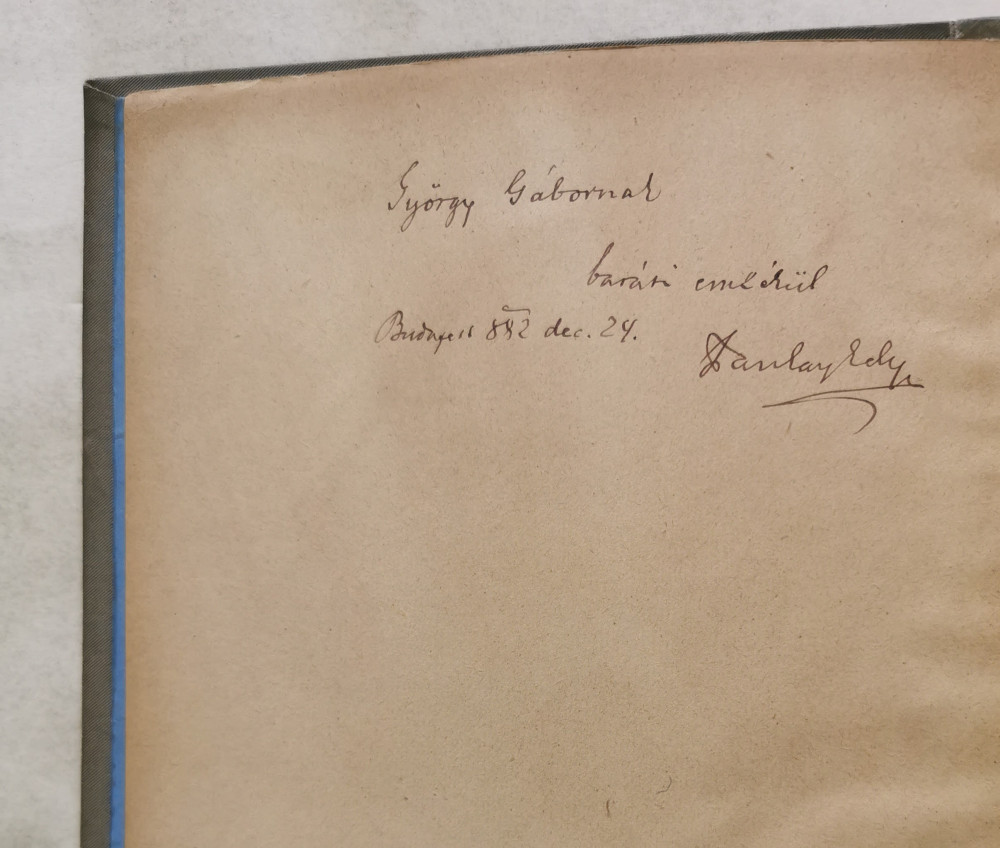 György Gábornak
baráti emlékül
Budapest 882 dec. 24.
Paulay Ede